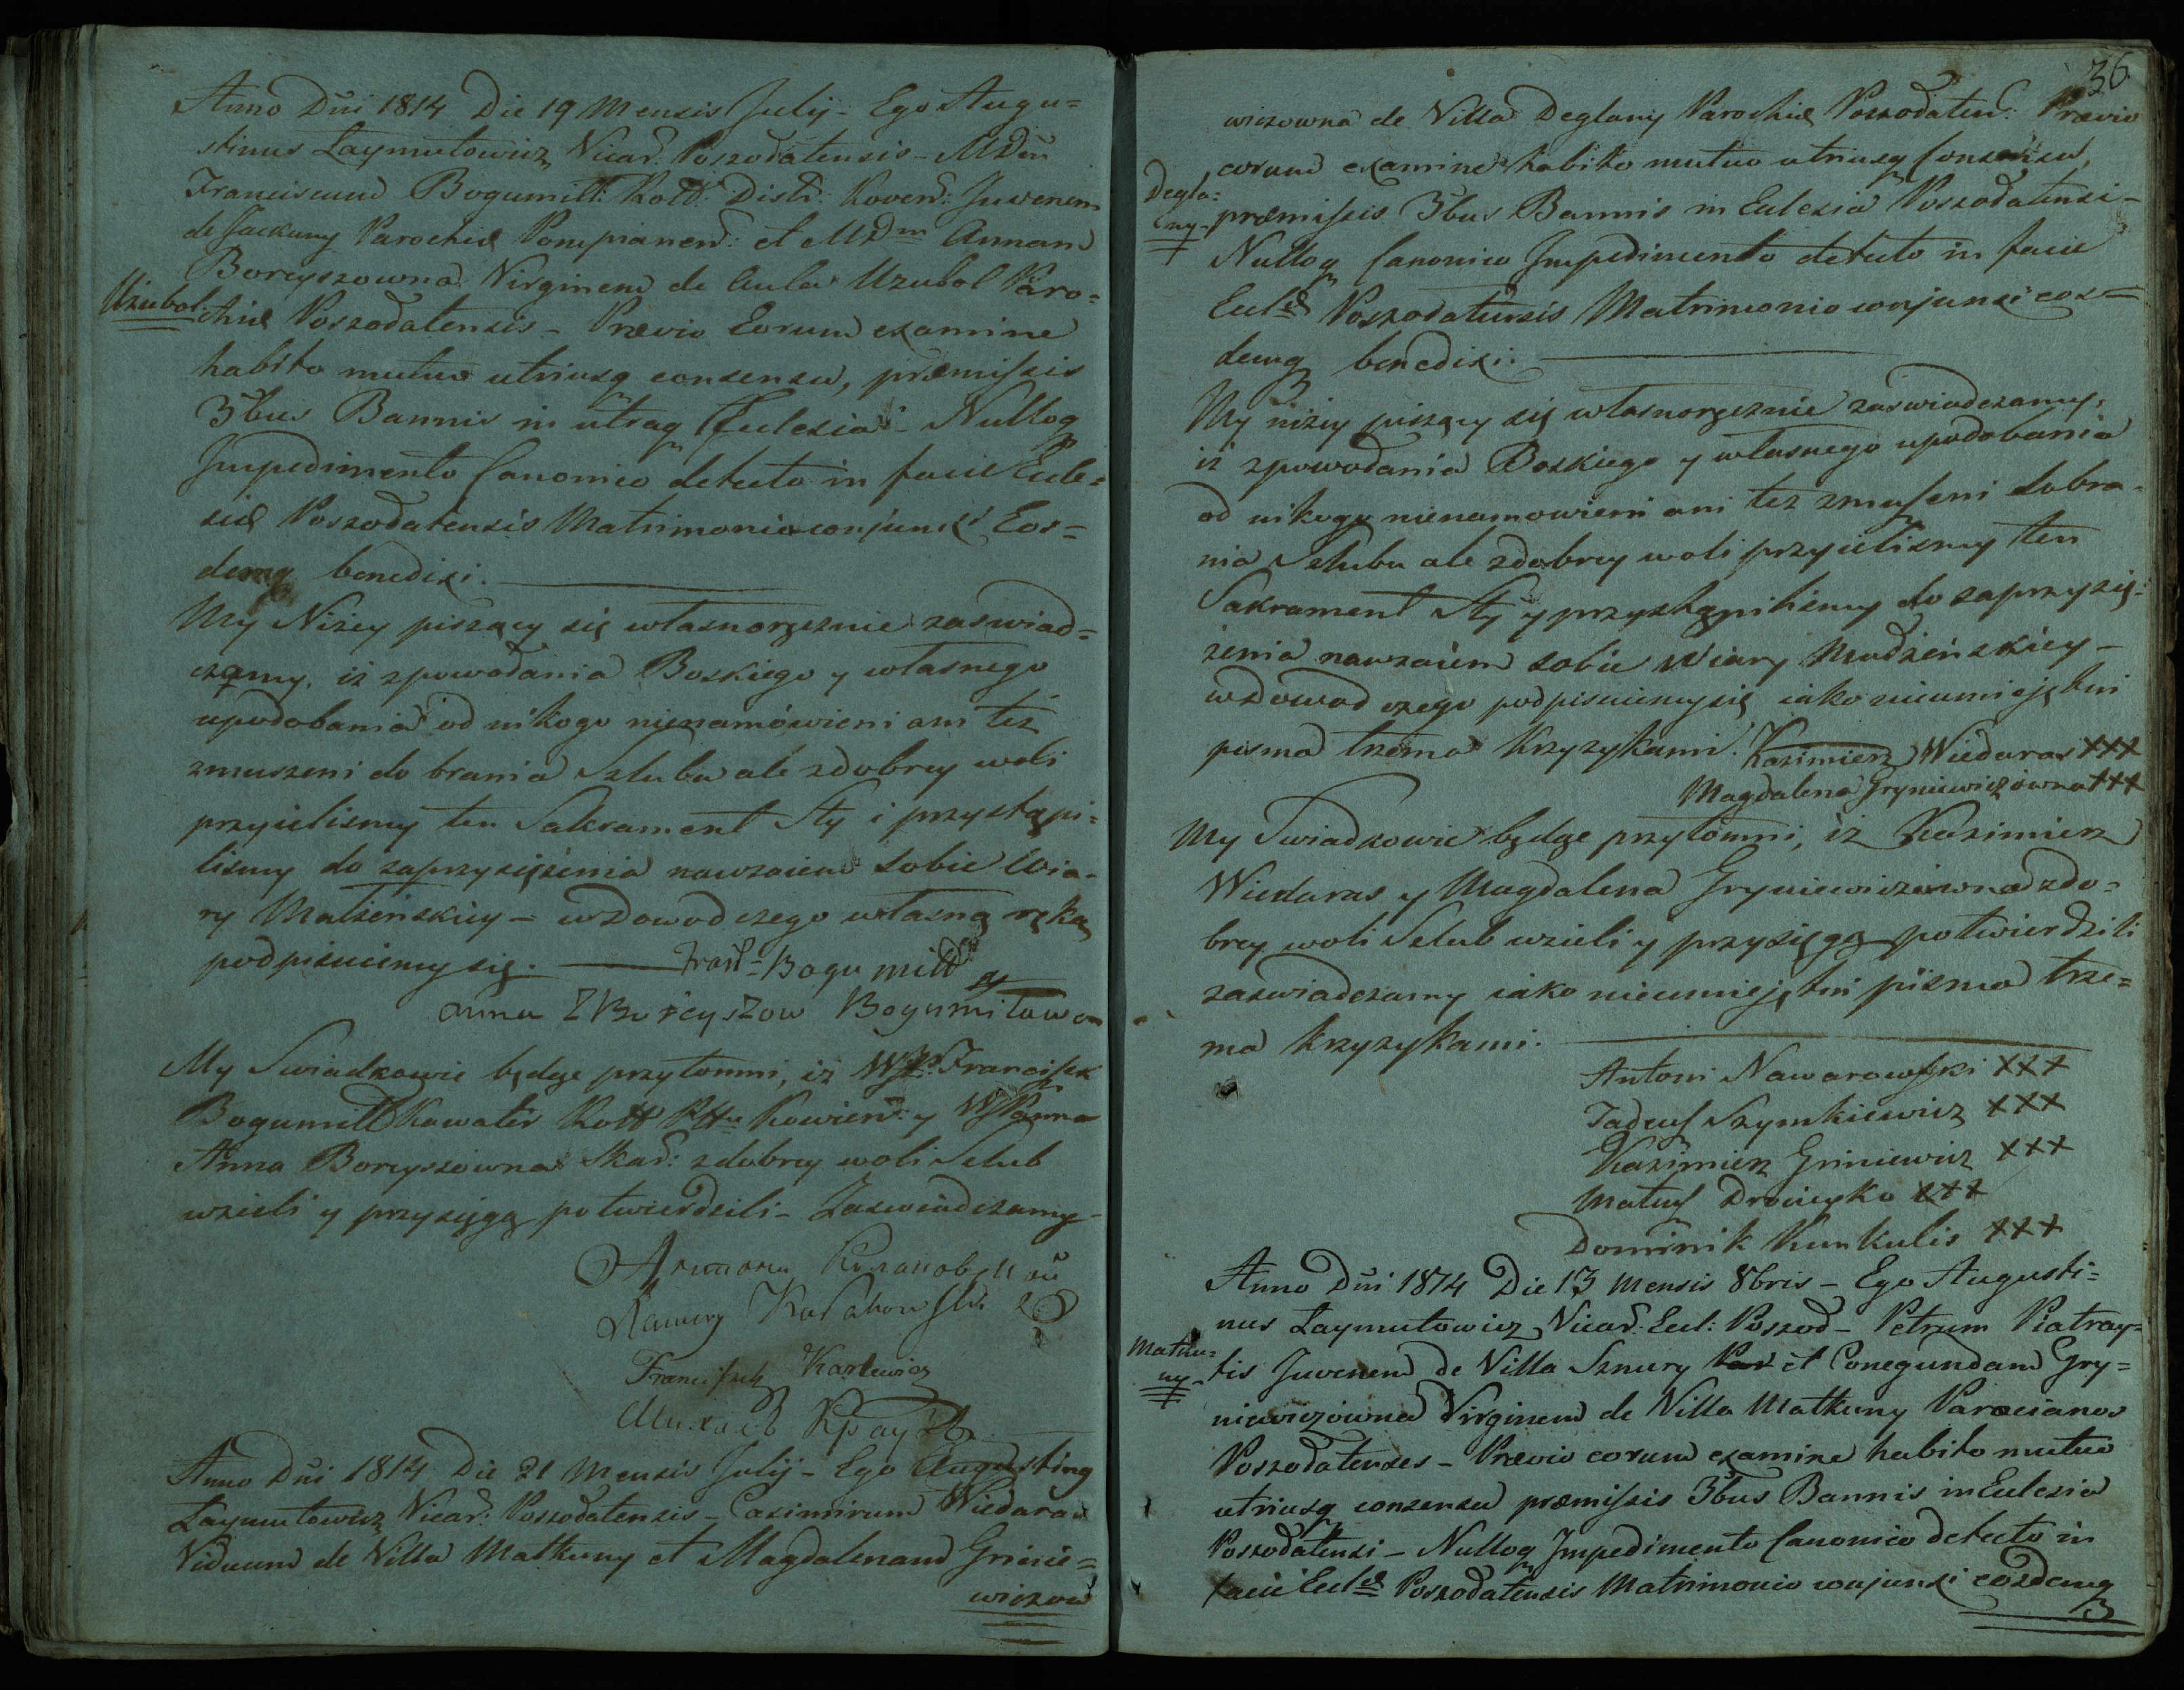 Anno Dni 1814 Die 19 Mensis Julij - Ego Augu=
stinus Laymutowicz Vicar: Poszodatensis - MDm
Franciscum Bogumill: Koll: Distr: Koven: Juvenem
de Jackuny Parochiæ Pompianen: et MDm Annam
Borcyszowna Virginem de Aula Uzubol Paro=
Uzubol.
chiæ Poszodatensis - Prævio Eorum examine
habito mutuo utriusq consensu, præmissis
3bus Bannis in utraq Ecclesia - Nulloq
Impedimento Canonico detecto in facie Eccle=
siæ Poszodatensis Matrimonio conjunxi Eos=
demq benedixi.
My Niżey piszący się własnoręcznie zaswiad=
czamy, iż zpowodania Boskiego y własnego
upodobania od nikogo nienamówieni ani też
zmuszeni do brania Szlubu ale zdobrey woli
przyieliśmy ten Sakrament Sty i przystąpi=
liśmy do zaprzysiężenia nawzaiem sobie Wia=
ry Małżeńskiey - wdowod czego własną ręką
podpisuiemy się. Fran= Bogumill
Anna z Borcyszow Bogumilowa
My Swiadkowie będąc przytomni, iż WJP: Franciszek
Bogumill Kawaler Koll Pttu Kowien: y WJPanna
Anna Borcyszowna Skar: zdobrey woli Szlub
wzieli y przysięgą potwierdzili - Zaswiadczamy -
Franciszek Karlewicz
Anno Dni 1814 Die 21 Mensis Julij - Ego Augustinq
Laymutowicz Vicar: Poszodatensis - Casimirum Wiedaras
Viduum de Villa Matkuny et Magdalenam Grinie=
wiczow
36
wiczowna de Villa Deglany Parochiæ Poszodaten: Prævio
eorum examine habito mutuo utriusq Consensu,
Degla=
ny
præmissis 3bus Bannis in Ecclesia Poszodatensi -
Nulloq Canonico Impedimento detecto in facie
Eclæ Poszodatensis Matrimonio conjunxi eos=
demq benedixi.
My niżey piszący się własnoręcznie zaswiadczamy,
iż zpowodania Boskiego y własnego upodobania
od nikogo nienamowieni ani też zmuszeni do bra=
nia Szlubu ale zdobrey woli przyieliśmy ten
Sakrament Sty y przystąpiliśmy do zaprzysię=
żenia nawzaiem sobie Wiary Małżeńskiey -
wdowod czego podpisuiemy się iako nieumieiętni
pisma trzema Krzyzykami. Kazimierz Wiedaras XXX
Magdalena Gryniewiczowna XXX
My Swiadkowie będąc przytomni, iż Kazimierz
Wiedaras y Magdalena Gryniewiczowna zdo=
brey woli Szlub wzieli y przysięgą potwierdzili
zaswiadczamy iako nieumieiętni pisma trze=
ma krzyzykami.
Antoni Nawarowski XXX
Tadeusz Szymkiewicz XXX
Kazimierz Griniewicz XXX
Mateusz XXX
Dominik Kunkulis XXX
Anno Dni 1814 Die 13 Mensis 8bris - Ego Augusti=
nus Laymutowicz Vicar: Ecl: Poszod - Petrum Piatray=
Matku=
ny
tis Juvenem de Villa Sznury et Conegundam Gry=
niewiczowna Virginem de Villa Matkuny Paræcianos
Poszodatenses - Prævio eorum examine habito mutuo
utriusq consensu præmissis 3bus Bannis in Ecclesia
Poszodatensi - Nulloq Impedimento Canonico detecto in
facie Eclæ Poszodatensis Matrimonio conjunxi eosdemq